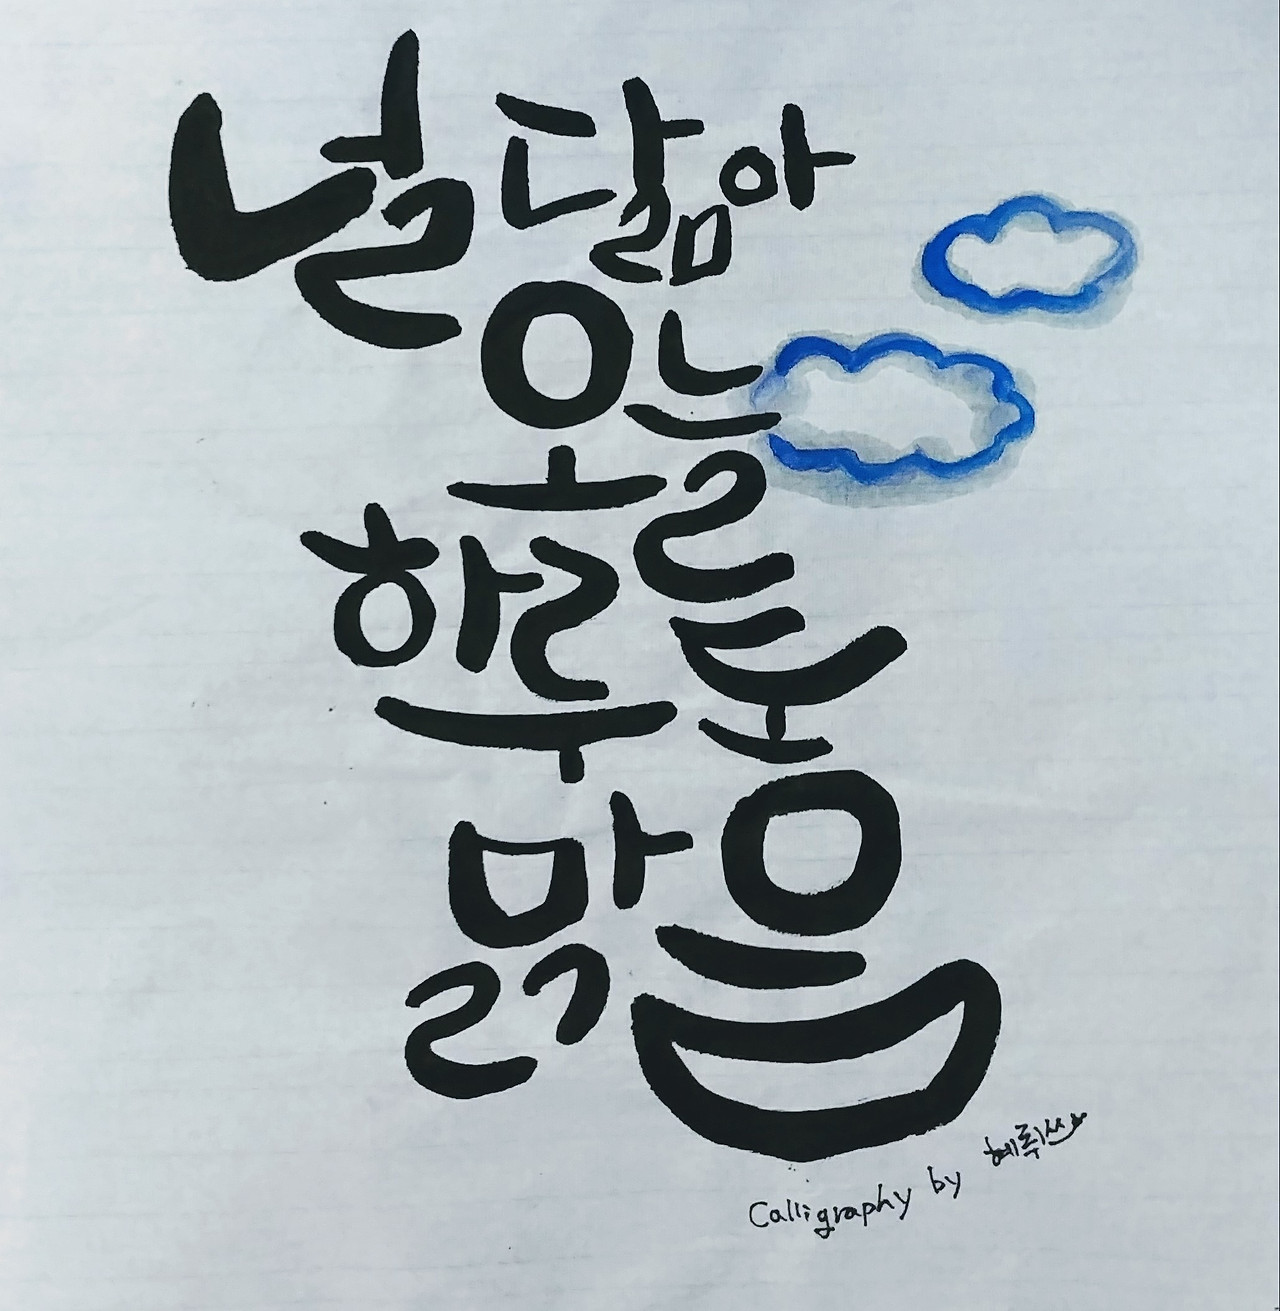 널 닮아
오늘
하루도
맑음
Calligraphy by